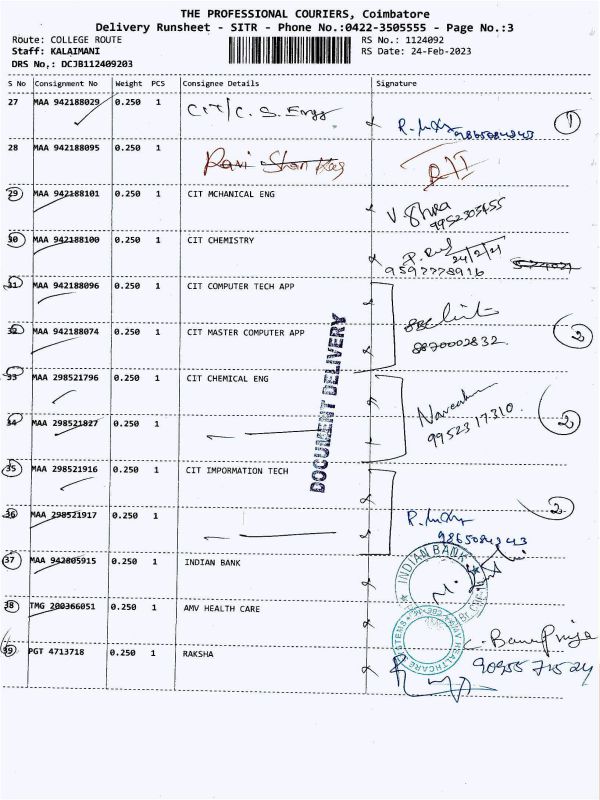 THE PROFESSIONAL COURIERS, Coimbatore
Delivery Runsheet - SITR - Phone No.:0422-3505555 - Page No.:3
Route: COLLEGE ROUTE RS No.: 1124092
Staff: KALAIMANI RS Date: 24-Feb-2023
DRS No,: DCJB112409203
S No Consignment No Weight PCS Consignee Details Signature
27 MAA 942188029 0.250 1 CIT/C.S. Engg 1
28 MAA 942188095 0.250 1 Ravi Shankar
29 MAA 942188101 0.250 1 CIT MCHANICAL ENG
9952303455
30 MAA 942188100 0.250 1 CIT CHEMISTRY
9597778916
31 MAA 942188096 0.250 1 CIT COMPUTER TECH APP
32 MAA 942188074 0.250 1 CIT MASTER COMPUTER APP 2
8870002832
DOCUMENT DELIVERY
33 MAA 298521796 0.250 1 CIT CHEMICAL ENG
34 MAA 298521827 0.250 1 2
9952317310
35 MAA 298521916 0.250 1 CIT IMPORMATION TECH
36 MAA 298521917 0.250 1 2
9865084243
37 MAA 942805915 0.250 1 INDIAN BANK
INDIAN BANK
38 TMG 200366051 0.250 1 AMV HEALTH CARE
AMV HEALTHCARE SYSTEMS
39 PGT 4713718 0.250 1 RAKSHA
90955 71524